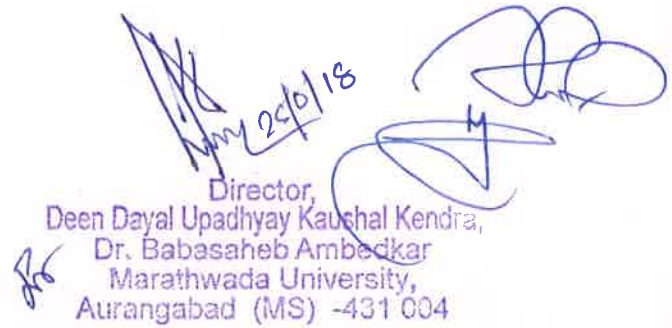 Director,
Deen Dayal Upadhyay Kaushal Kendra,
Dr. Babasaheb Ambedkar
Marathwada University,
Aurangabad (MS) -431 004